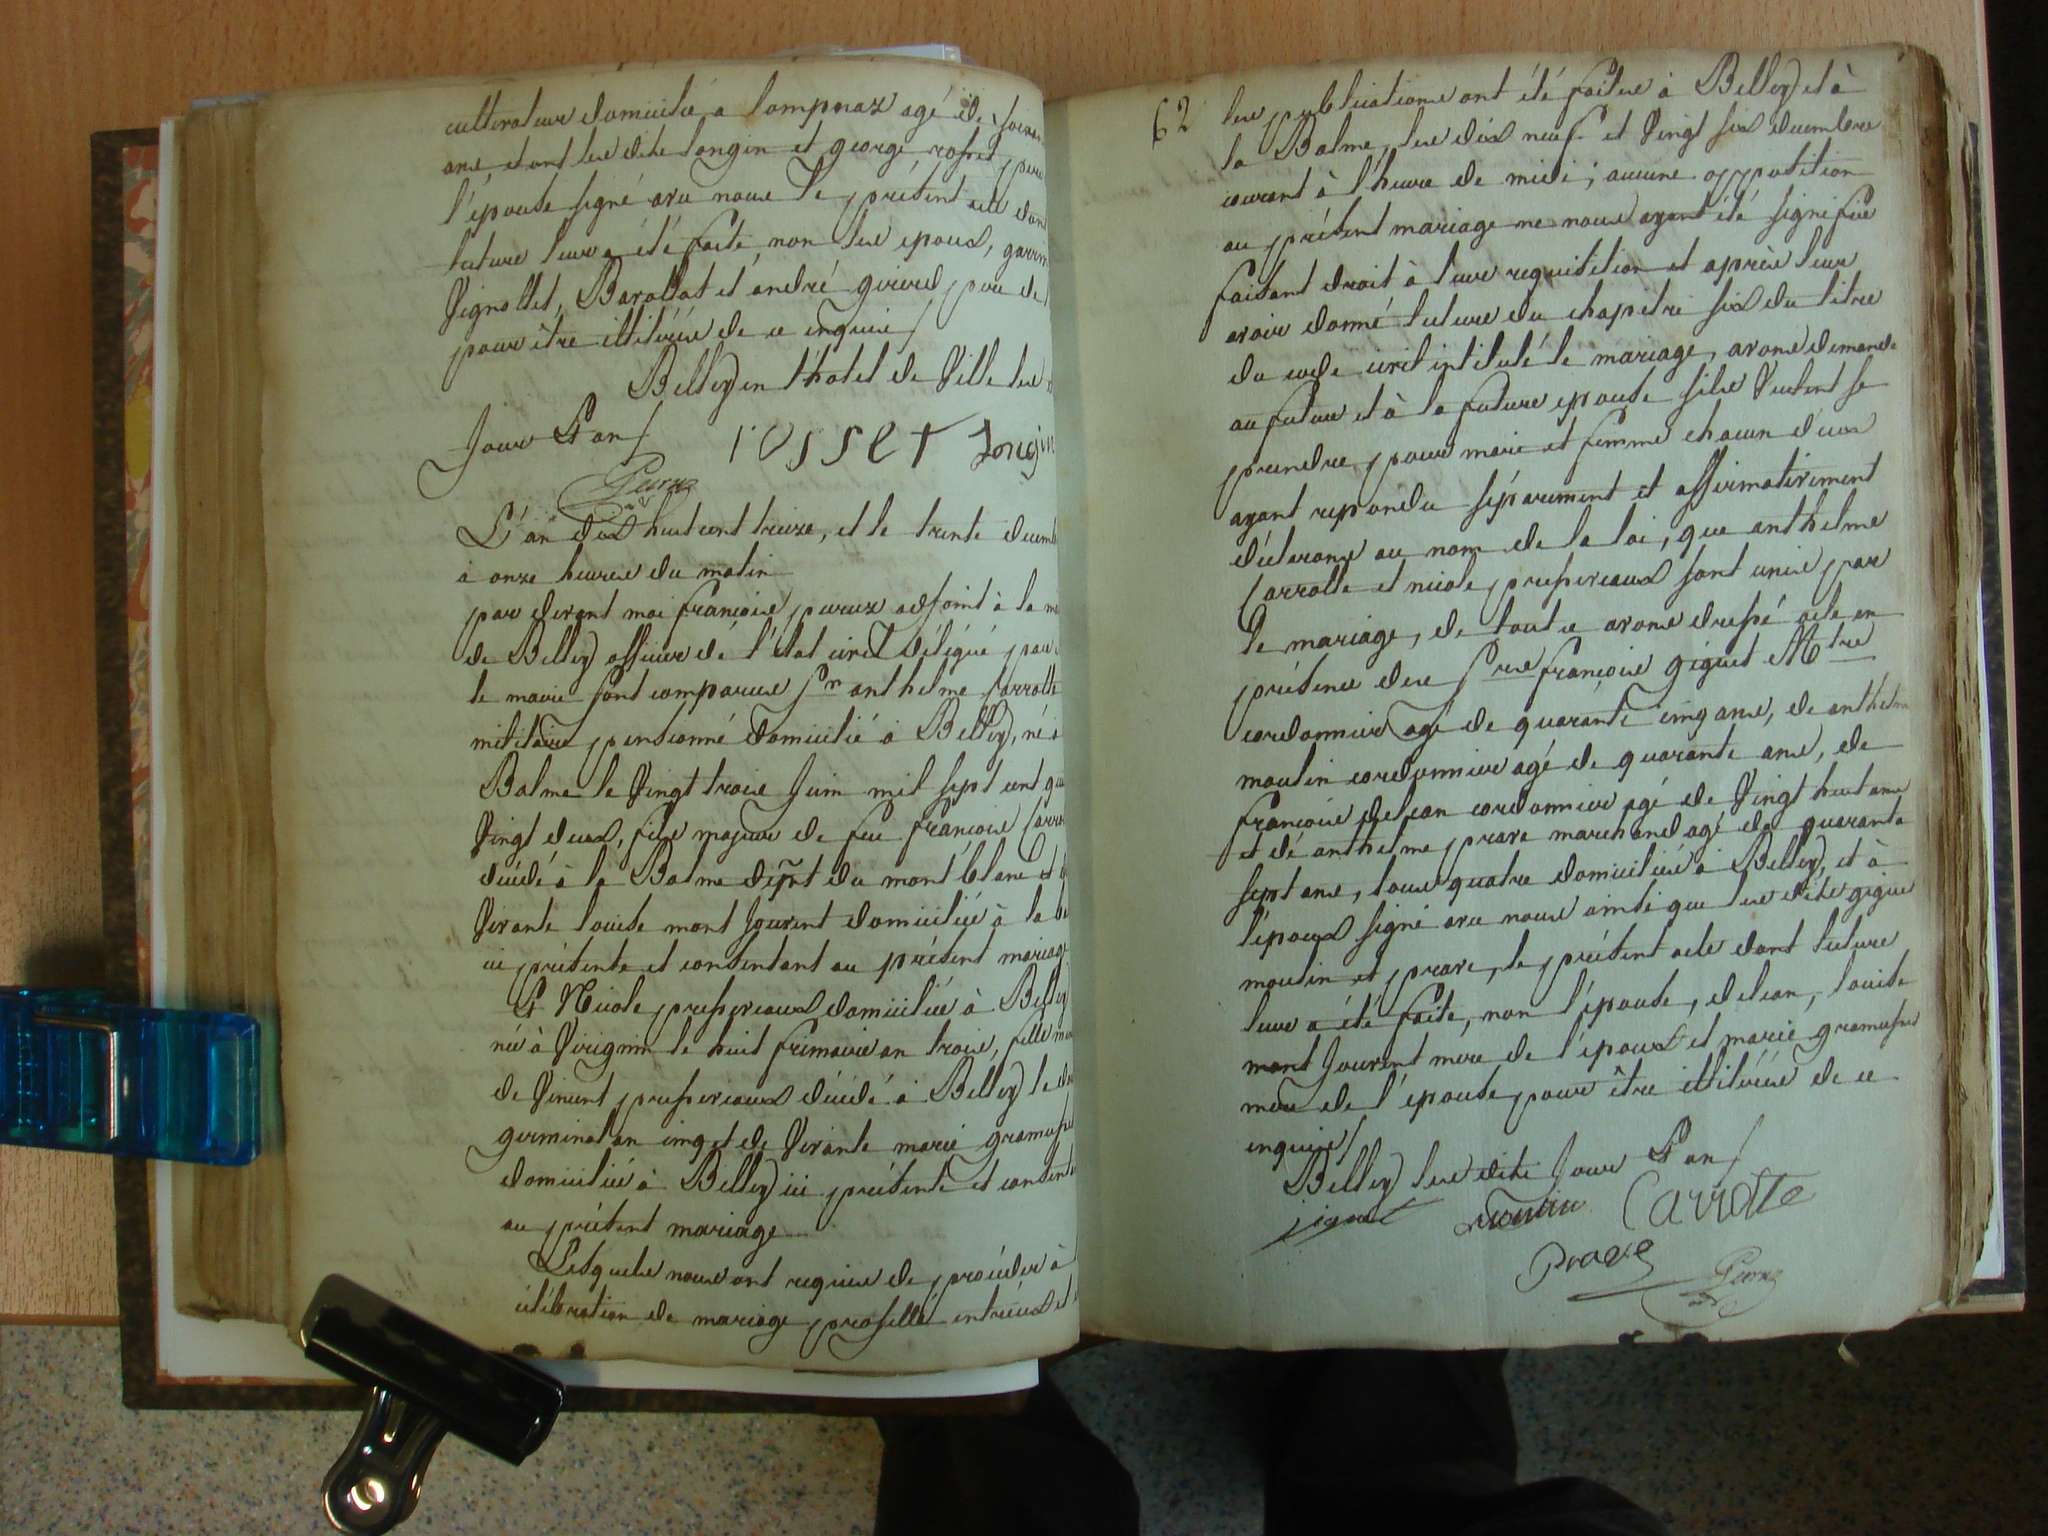 cultivateur domicilié a lompnaz agé de soixan
ans, et ont les dits longin et george rosset pere
l'epouse signé avec nous le présent acte dont
lecture leur a été faite, non les epoux, garin
Vignollet, Barollat et andré girerd pere de
pour être illitérés de ce enquis /
Belley en l'hotel de Ville les
Jour & an / rosset Longin
Peruz
L'an dix huit cent treize, et le trente decemb
à onze heures du matin
par devant moi françois peruz adjoint à la m
de Belley officier de l'état civil délégué par
le maire sont comparus sr anthelme Carrotte
militaire pensionné domicilié à Belley, né à
Balme le Vingt trois Juin mil sept cent qu
Vingt deux, fils majeur de feu françois Carro
décédé à la Balme dépt du mont blanc et
Vivante louise mont Jouvent domiciliée à la b
ici présente et consentant au présent mariage
& Nicole presserveaux domiciliée à Belley
née à Virignin le huit frimaire an trois, fille m
de Vincent presserveaux décédé à Belley le d
germinal an cinq et de Vivante marie gramusse
domiciliée à Belley ici présente et consent
au présent mariage
Lesquels nous ont requis de procéder à
célébration de mariage projetté entreux et
62
les publications ont été faites à Belley et à
la Balme, les dix neuf et Vingt six decembre
courant à l'heure de midi; aucune opposition
au présent mariage ne nous ayant été signifiée
faisant droit à leur requisition et après leur
avoir donné lecture du chapitre six du titre
du code civil intitulé le mariage, avons demandé
au futur et à la future epouse s'ils Veulent se
prendre pour mari et femme chacun d'eux
ayant repondu séparement et affirmativement
déclarons au nom de la loi, que anthelme
Carrotte et nicole presserveaux sont unis par
le mariage, de tout ce avons dressé acte en
présence des srs françois giguet Mtre
cordonnier agé de quarante cinq ans, de anthelme
moulin cordonnier agé de quarante ans, de
françois delean cordonnier agé de Vingt huit ans
et de anthelme prave marchand agé de quarante
sept ans, tous quatre domiciliés à Belley, et à
l'epoux signé avec nous ainsi que les dits giguet
moulin et prave, le présent acte dont lecture
leur a été faite, non l'épouse, delean, louise
mont Jouvent mere de l'epoux et marie gramusse
mere de l'épouse pour être illitérés de ce
enquis /
Belley les dits Jour & an /
giguet moulin Carrotte
Prave Peruz